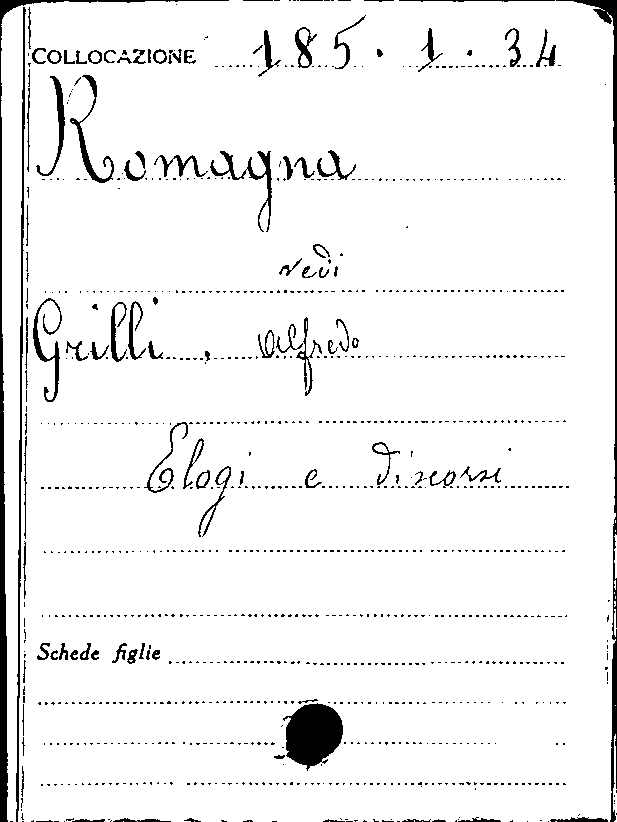 COLLOCAZIONE 185 . 1 . 34
Romagna
vedi
Grilli, Alfredo
Elogi e discorsi
Schede figlie